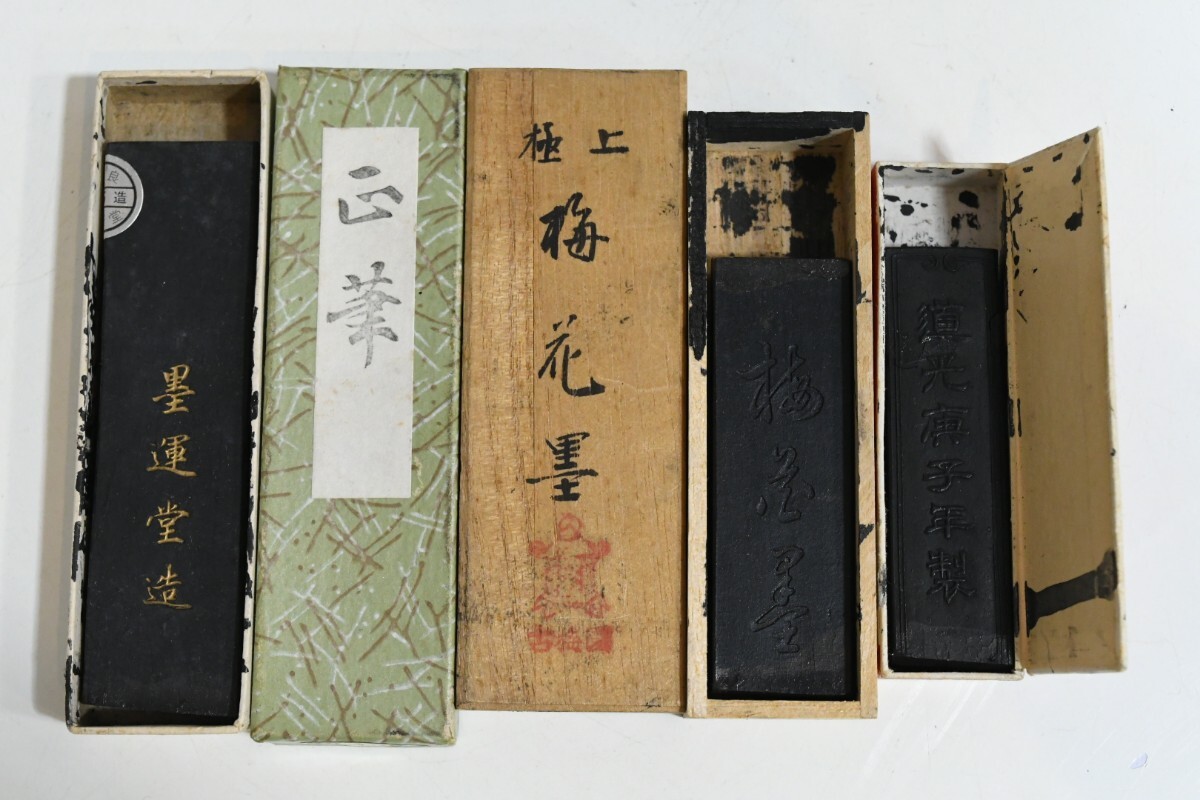 墨運堂造
正筆
極上
梅花墨
梅花墨
道光庚子年製